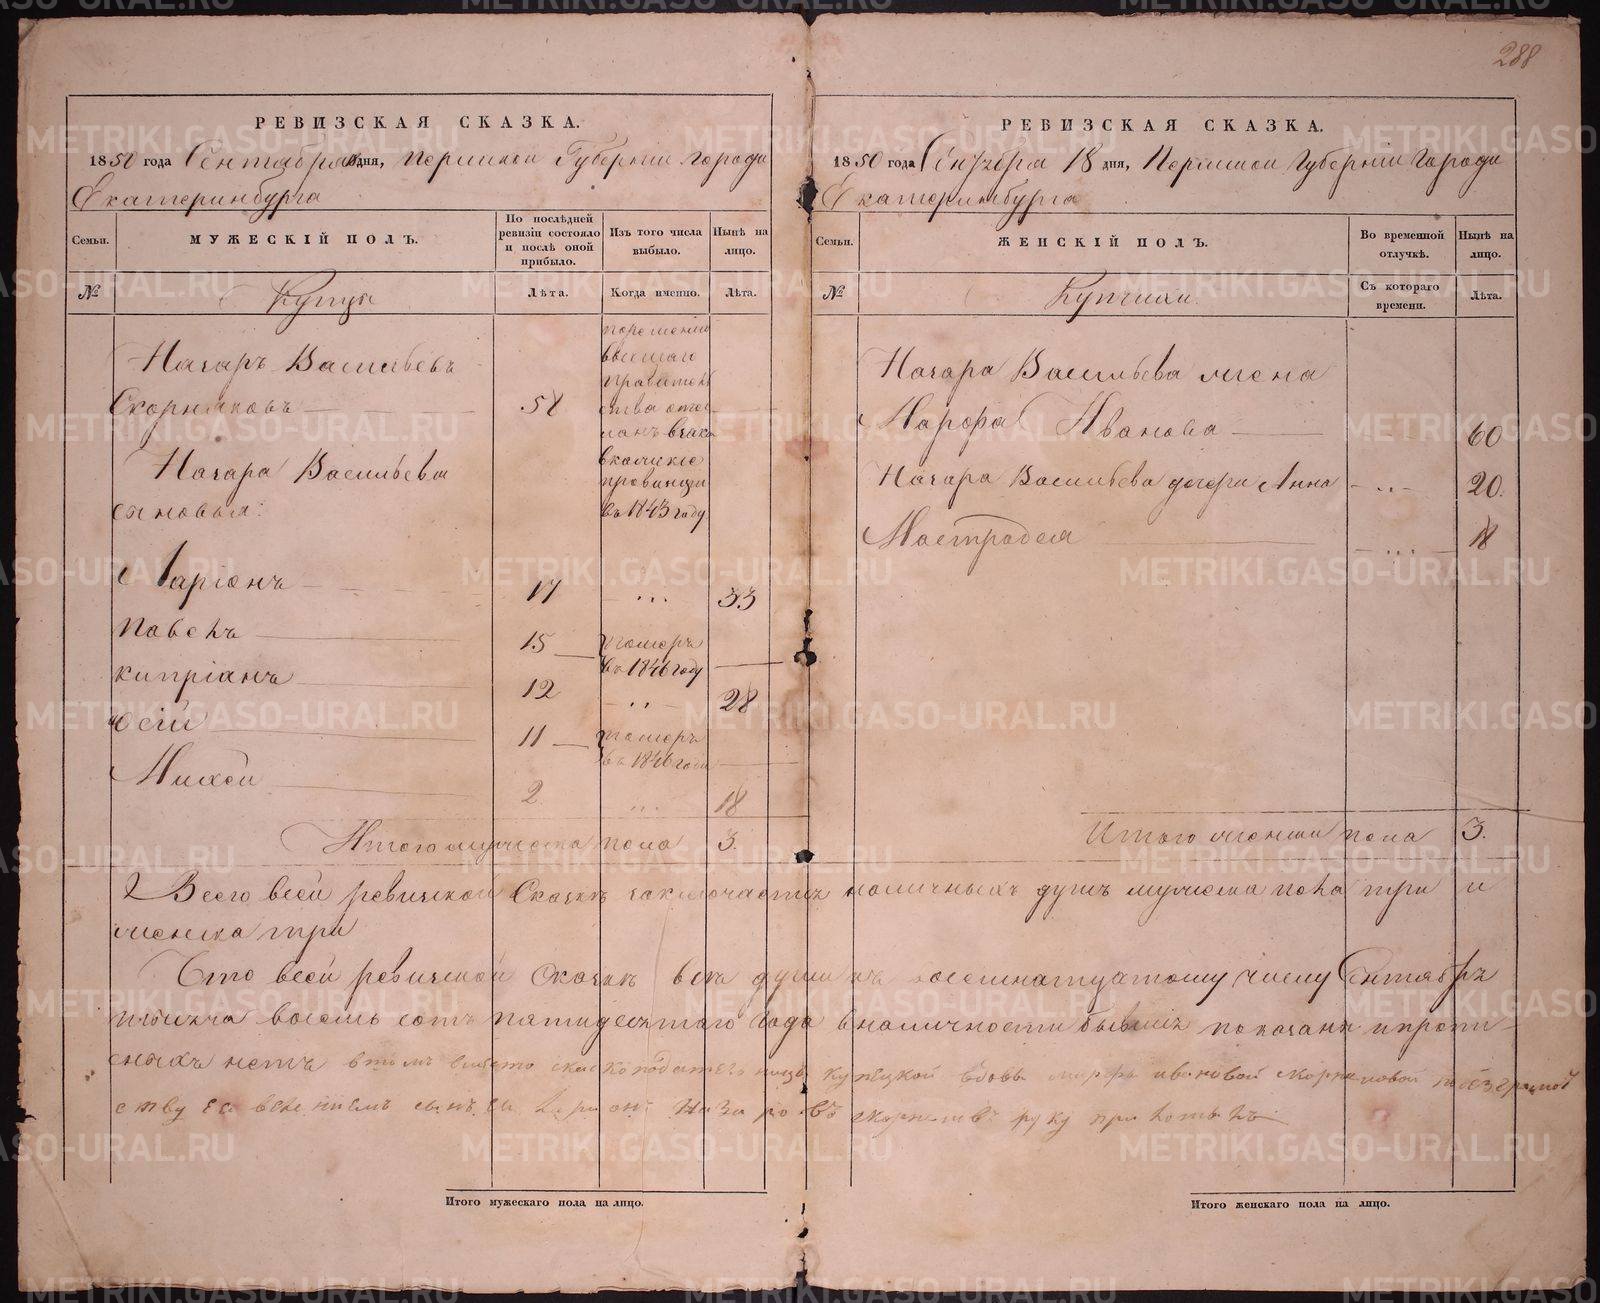 288
РЕВИЗСКАЯ СКАЗКА.
1850 года Сентября 18 дня, Пермской Губернiи города
Екатеринбурга
Семьи.
МУЖЕСКIЙ ПОЛЪ.
По послѣдней ревизiи состояло и послѣ оной прибыло.
Изъ того числа выбыло.
Нынѣ на лицо.
№
Купцы
Лѣта.
Когда именно.
Лѣта.
Назаръ Васильевъ
Скорняковъ 58
по решенiю
высшаго
правитель
ства отос
ланъ
провинцiи
въ 1843 году
Назара Васильева
сыновья:
Ларiонъ 17 ... 33
Павелъ 15 померъ
въ 1846 году
Кипрiанъ 12 ... 28
11 померъ
въ 1846 году
Михей 2 ... 18
Итого мужеска пола 3.
РЕВИЗСКАЯ СКАЗКА.
1850 года Сентября 18 дня, Пермской Губернiи города
Екатеринбурга
Семьи.
ЖЕНСКIЙ ПОЛЪ.
Во временной отлучкѣ.
Нынѣ на лицо.
№
Купчихи.
Съ котораго времени.
Лѣта.
Назара Васильева жена
Марфа Иванова 60
Назара Васильева дочери Анна ... 20.
Настасея ... 18
Итого женска пола 3.
Всего в сей ревизской Сказкѣ заключается наличныхъ душъ мужеска пола три и
женска три
Что в сей ревизской Сказкѣ все души къ восемнатцатому числу Сентября
тысяча восемь сотъ пятидесятаго года в наличности бывшiе показаны и пропи
сныхъ нетъ в томъ вместо купецкой вдовы марфы ивановой скорняковой по безграмот
ству ее сынъ ея Ларион Назаровъ скорняковъ руку приложилъ
Итого мужескаго пола на лицо.
Итого женскаго пола на лицо.
METRIKI.GASO-URAL.RU